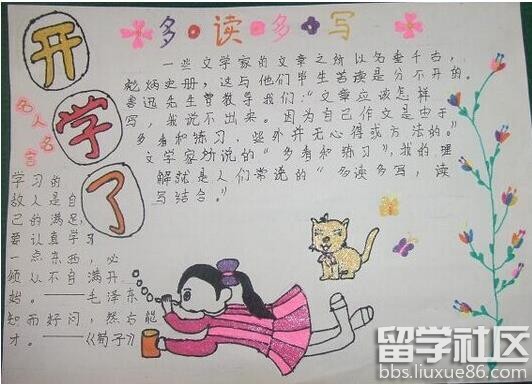 开学了
多·读·多·写
一些文学家的文章之所以名垂千古，
彪炳史册，这与他们毕生苦读是分不开的。
鲁迅先生曾教导我们：“文章应该怎样
写，我说不出来。因为自己作文是由于
多看和练习，些外并无心得或方法的。”
文学家所说的“多看和练习”，我的理
解就是人们常说的“多读多写，读
写结合。”
名人名言
学习的
敌人是自
己的满足，
要认真学习
一点东西，必
须从不自满开
始。——毛泽东
知而好问，然后能
才。——《荀子》
留学社区
bbs.liuxue86.com